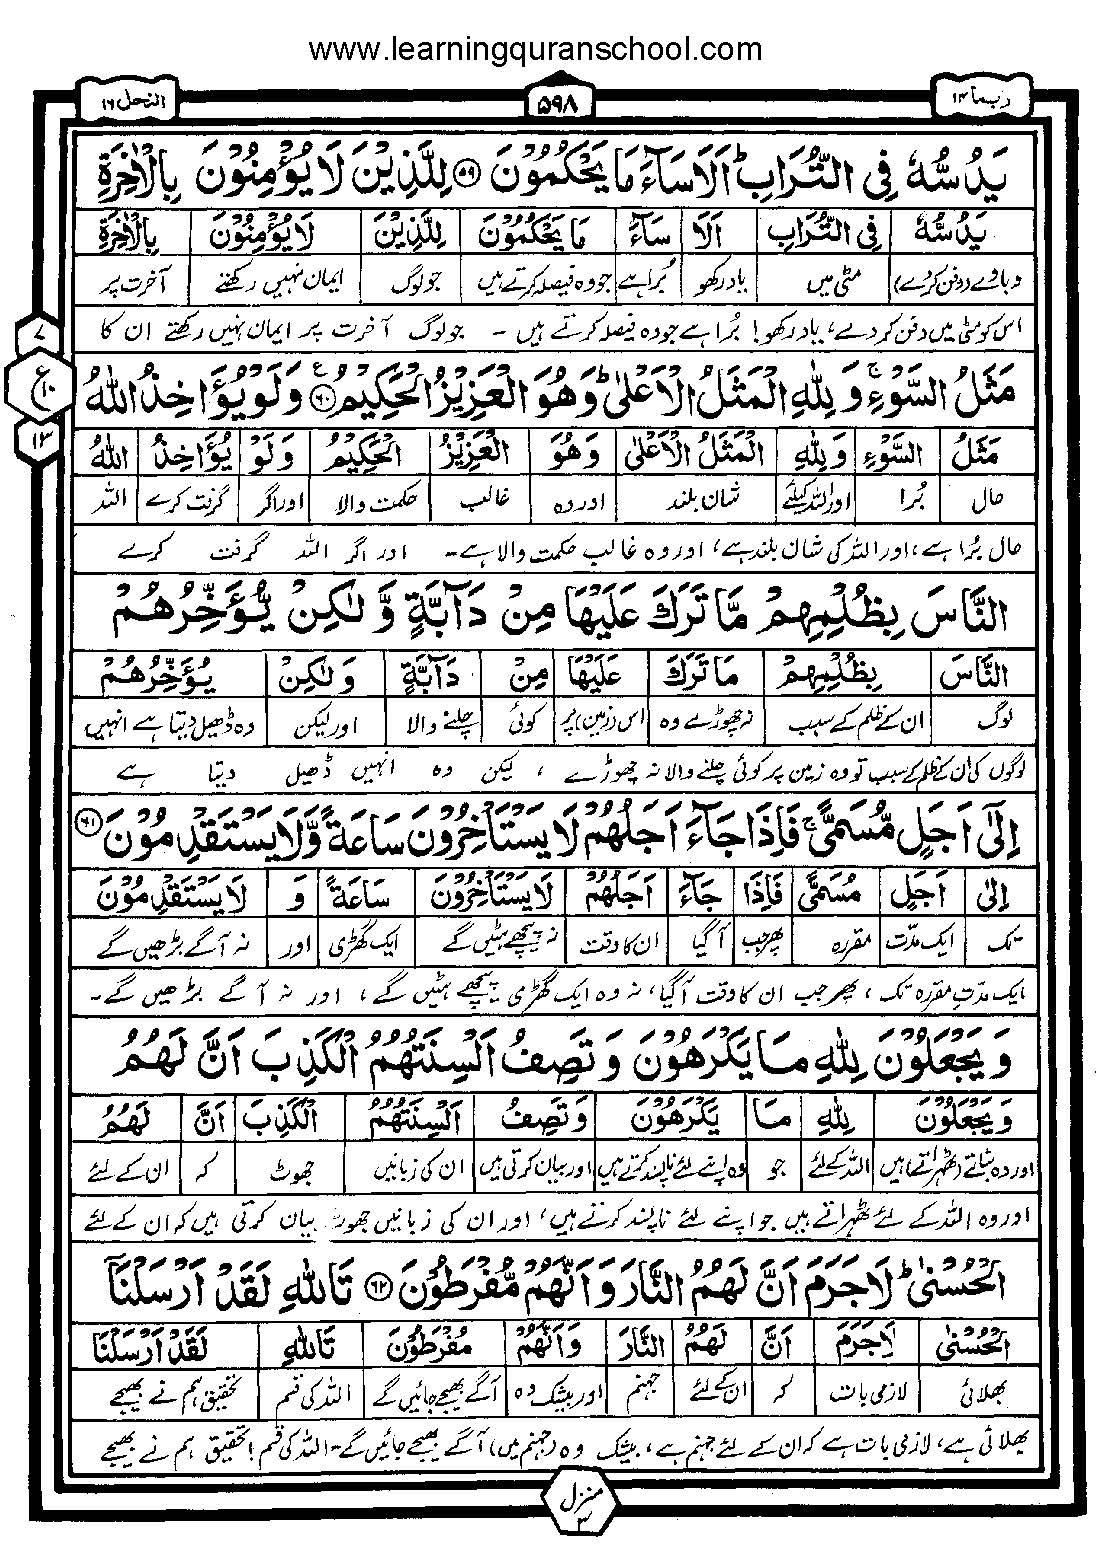 www.learningquranschool.com
ربما ۱۴
۵۹۸
النحل ۱۶
يَدُسُّهٗ فِى التُّرَابِ ؕ اَلَا سَآءَ مَا يَحْكُمُوْنَ ﴿۵۹﴾ لِلَّذِيْنَ لَا يُؤْمِنُوْنَ بِالْاٰخِرَةِ
يَدُسُّهٗ فِى التُّرَابِ اَلَا سَآءَ مَا يَحْكُمُوْنَ لِلَّذِيْنَ لَا يُؤْمِنُوْنَ بِالْاٰخِرَةِ
دباوے (دفن کردے) مٹی میں یاد رکھو بُرا ہے جو وہ فیصلہ کرتے ہیں جو لوگ ایمان نہیں رکھتے آخرت پر
اس کو مٹی میں دفن کر دے، یاد رکھو! بُرا ہے جو وہ فیصلہ کرتے ہیں - جو لوگ آخرت پر ایمان نہیں رکھتے ان کا
۷
ع
۱۰
۱۳
مَثَلُ السَّوْءِ ۚ وَ لِلّٰهِ الْمَثَلُ الْاَعْلٰى ؕ وَهُوَ الْعَزِيْزُ الْحَكِيْمُ ﴿۶۰﴾ وَ لَوْ يُؤَاخِذُ اللّٰهُ
مَثَلُ السَّوْءِ وَ لِلّٰهِ الْمَثَلُ الْاَعْلٰى وَهُوَ الْعَزِيْزُ الْحَكِيْمُ وَ لَوْ يُؤَاخِذُ اللّٰهُ
حال بُرا اور اللہ کیلئے شان بلند اور وہ غالب حکمت والا اور اگر گرفت کرے اللہ
حال بُرا ہے، اور اللہ کی شان بلند ہے، اور وہ غالب حکمت والا ہے - اور اگر اللہ گرفت کرے
النَّاسَ بِظُلْمِهِمْ مَّا تَرَكَ عَلَيْهَا مِنْ دَآبَّةٍ وَّ لٰكِنْ يُّؤَخِّرُهُمْ
النَّاسَ بِظُلْمِهِمْ مَا تَرَكَ عَلَيْهَا مِنْ دَآبَّةٍ وَ لٰكِنْ يُؤَخِّرُهُمْ
لوگ ان کے ظلم کے سبب نہ چھوڑے وہ اس (زمین) پر کوئی چلنے والا اور لیکن وہ ڈھیل دیتا ہے انہیں
لوگوں کی ان کے ظلم کے سبب تو وہ زمین پر کوئی چلنے والا نہ چھوڑے ، لیکن وہ انہیں ڈھیل دیتا ہے
اِلٰٓى اَجَلٍ مُّسَمًّى ۚ فَاِذَا جَآءَ اَجَلُهُمْ لَا يَسْتَاْخِرُوْنَ سَاعَةً وَّلَا يَسْتَقْدِمُوْنَ ﴿۶۱﴾
اِلٰى اَجَلٍ مُسَمًّى فَاِذَا جَآءَ اَجَلُهُمْ لَا يَسْتَاْخِرُوْنَ سَاعَةً وَ لَا يَسْتَقْدِمُوْنَ
تک ایک مدّت مقررہ پھر جب آگیا ان کا وقت نہ پیچھے ہٹیں گے ایک گھڑی اور نہ آگے بڑھیں گے
ایک مدّتِ مقررہ تک ، پھر جب ان کا وقت آگیا، نہ وہ ایک گھڑی پیچھے ہٹیں گے، اور نہ آگے بڑھیں گے -
وَ يَجْعَلُوْنَ لِلّٰهِ مَا يَكْرَهُوْنَ وَ تَصِفُ اَلْسِنَتُهُمُ الْكَذِبَ اَنَّ لَهُمُ
وَ يَجْعَلُوْنَ لِلّٰهِ مَا يَكْرَهُوْنَ وَ تَصِفُ اَلْسِنَتُهُمُ الْكَذِبَ اَنَّ لَهُمُ
اور وہ بناتے (ٹھہراتے) ہیں اللہ کے لئے جو وہ اپنے لئے ناپسند کرتے ہیں اور بیان کرتی ہیں ان کی زبانیں جھوٹ کہ ان کے لئے
اور وہ اللہ کے لئے ٹھہراتے ہیں جو اپنے لئے ناپسند کرتے ہیں، اور ان کی زبانیں جھوٹ بیان کرتی ہیں کہ ان کے لئے
الْحُسْنٰى ؕ لَا جَرَمَ اَنَّ لَهُمُ النَّارَ وَ اَنَّهُمْ مُّفْرَطُوْنَ ﴿۶۲﴾ تَاللّٰهِ لَقَدْ اَرْسَلْنَآ
الْحُسْنٰى لَا جَرَمَ اَنَّ لَهُمُ النَّارَ وَ اَنَّهُمْ مُفْرَطُوْنَ تَاللّٰهِ لَقَدْ اَرْسَلْنَا
بھلائی لازمی بات کہ ان کے لئے جہنم اور بیشک وہ آگے بھیجے جائیں گے اللہ کی قسم تحقیق ہم نے بھیجے
بھلائی ہے، لازمی بات ہے کہ ان کے لئے جہنم ہے، بیشک وہ (جہنم میں) آگے بھیجے جائیں گے - اللہ کی قسم! تحقیق ہم نے بھیجے
منزل ۳